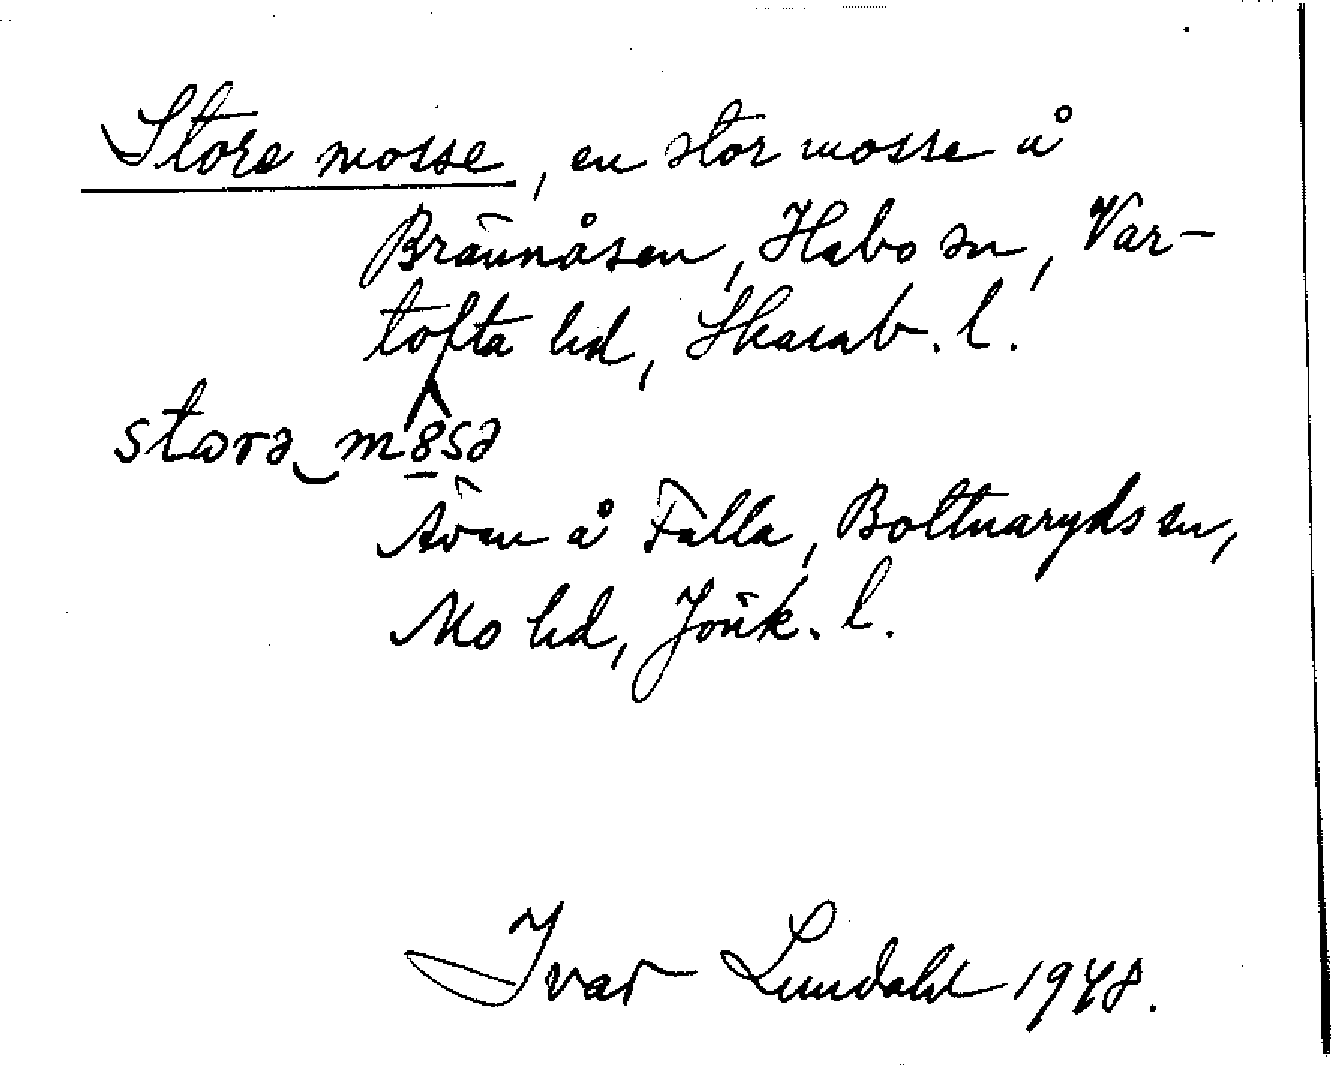 Store mosse, en stor mosse å
Brännåsen, Habo sn, Var-
tofta hd, Skarab. l.
storə‿m8sə
Även å Fälla, Bottnaryds sn,
Mo hd, Jönk. l.
Ivar Lundahl 1948.